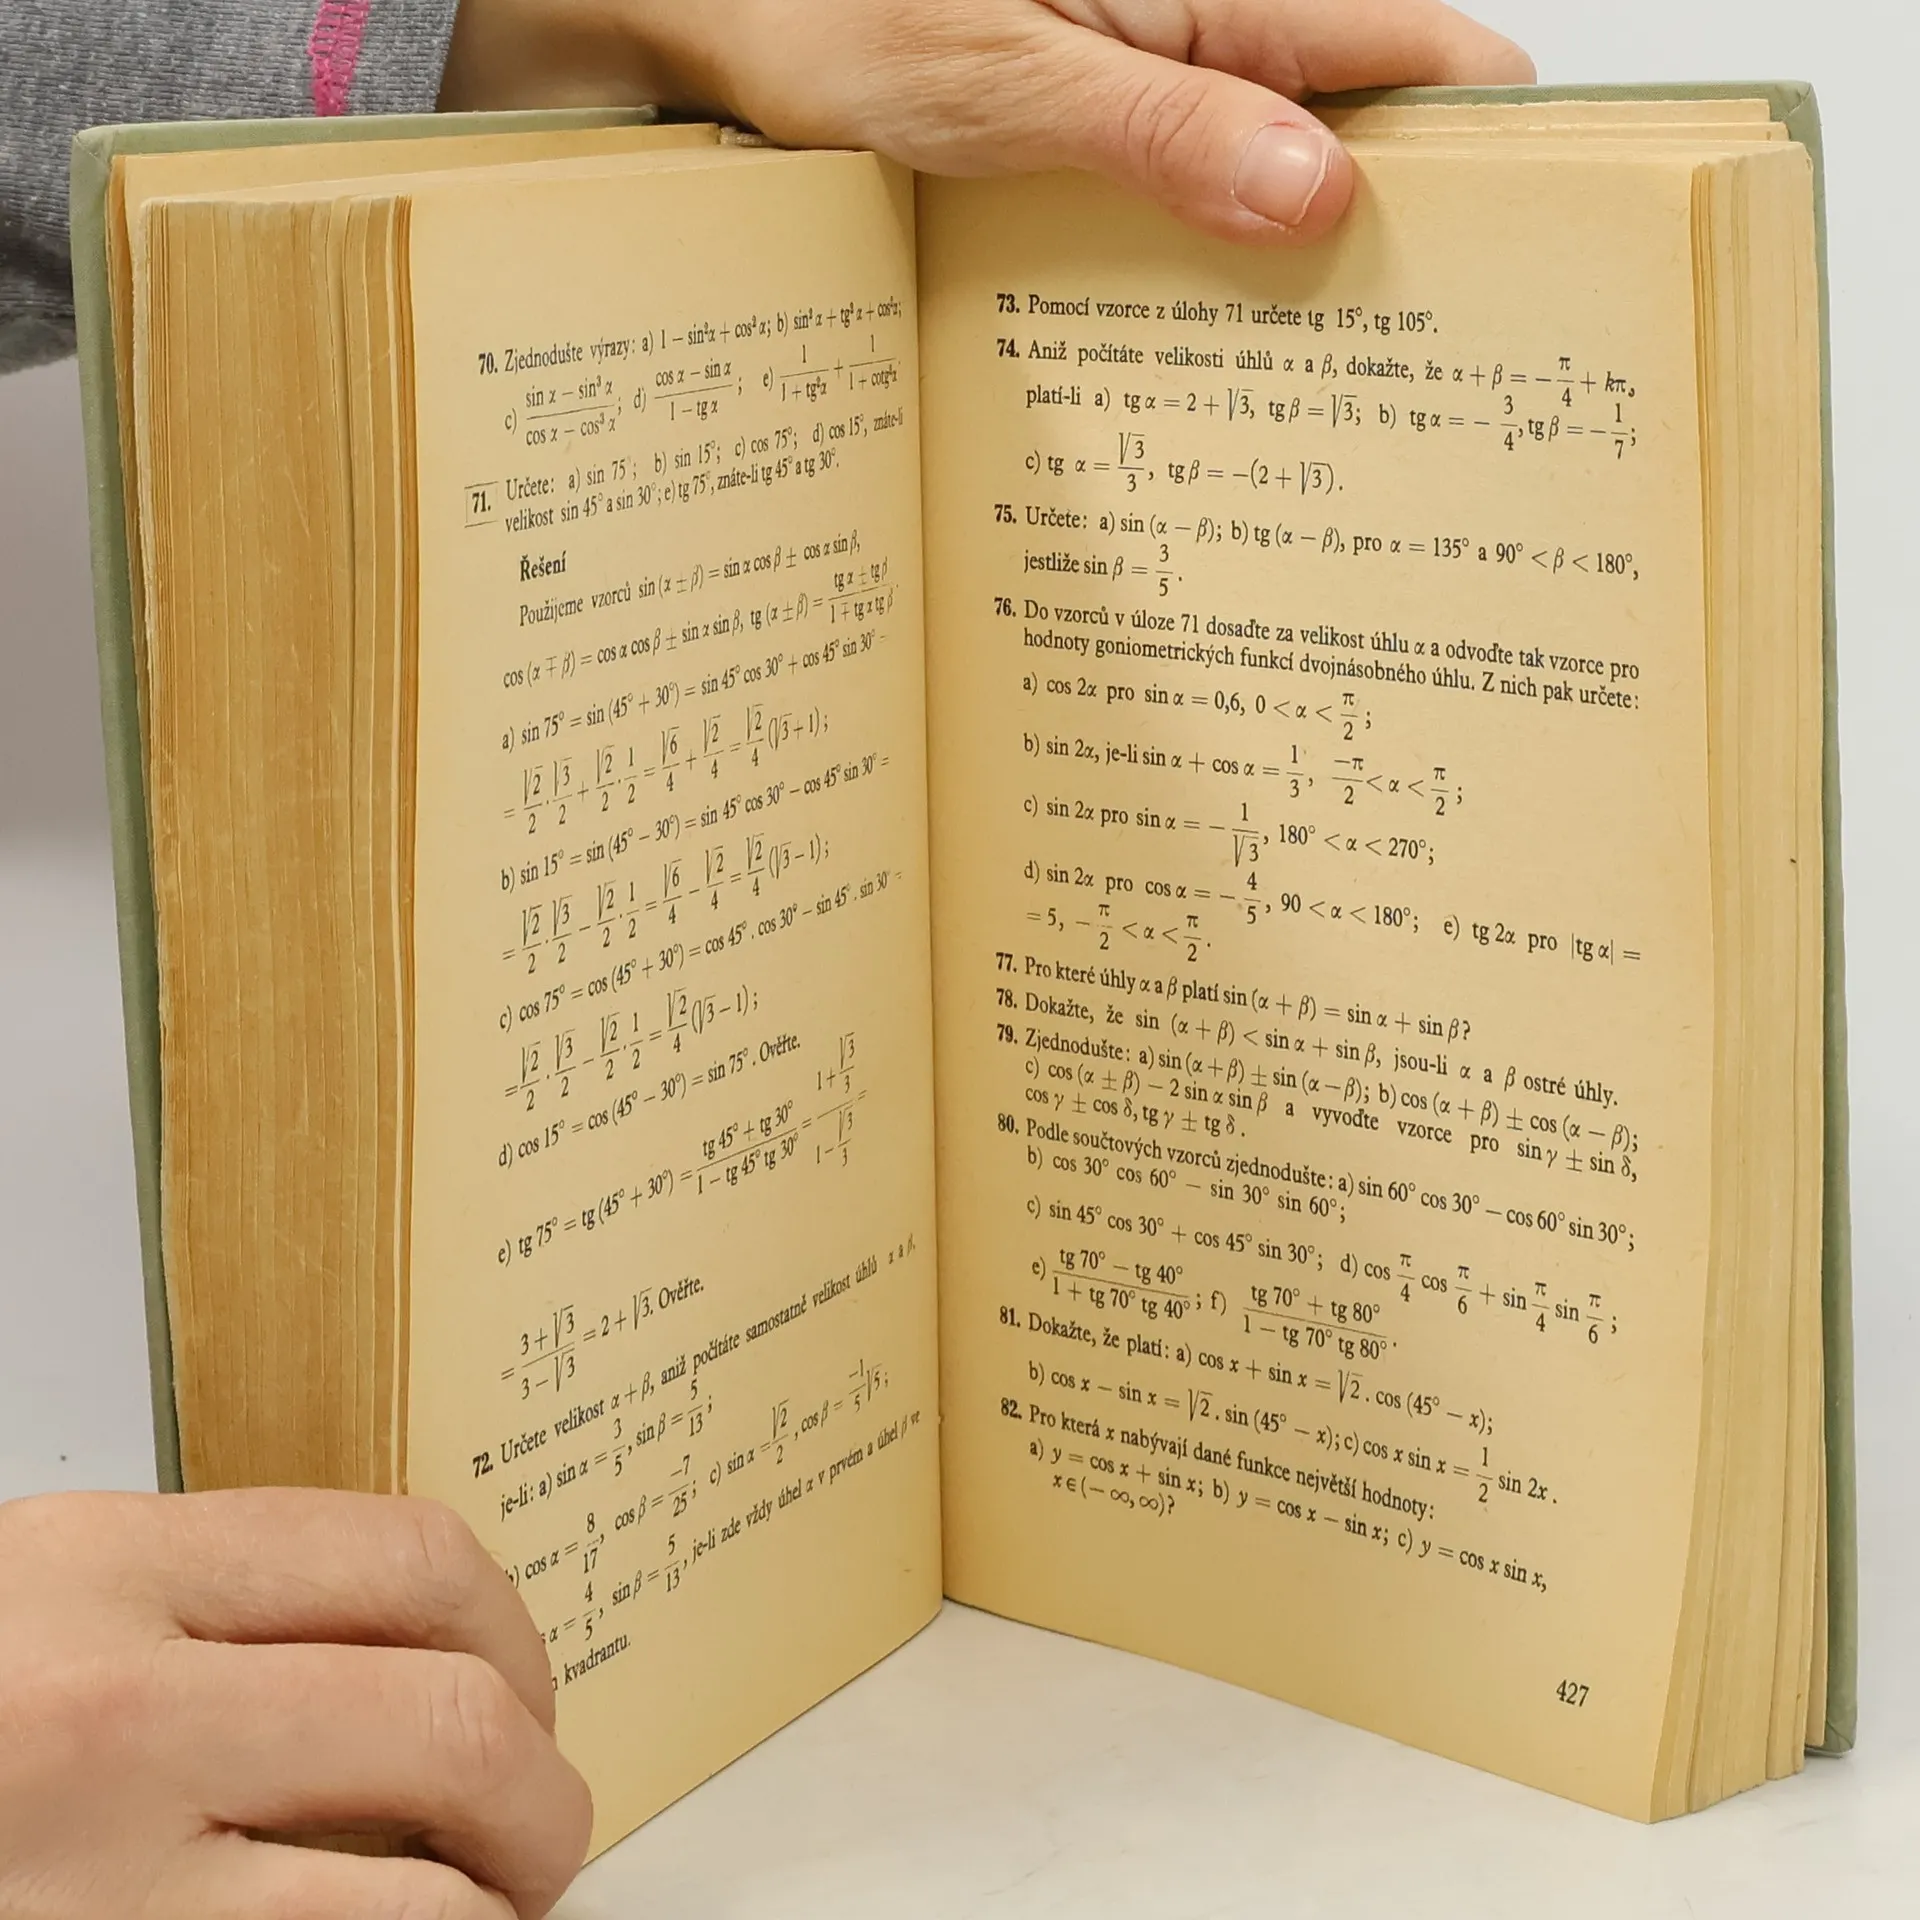 70. Zjednodušte výrazy: a) 1 − sin²α + cos² α; b) sin² α + tg² α + cos²α;
c) (sin α − sin³ α)/(cos α − cos³ α); d) (cos α − sin α)/(1 − tg α); e) 1/(1 + tg²α) + 1/(1 + cotg²α).
71. Určete: a) sin 75°; b) sin 15°; c) cos 75°; d) cos 15°, znáte-li
velikost sin 45° a sin 30°; e) tg 75°, znáte-li tg 45° a tg 30°.
Řešení
Použijeme vzorců sin (α ± β) = sin α cos β ± cos α sin β,
cos (α ∓ β) = cos α cos β ± sin α sin β, tg (α ± β) = (tg α ± tg β)/(1 ∓ tg α tg β).
a) sin 75° = sin (45° + 30°) = sin 45° cos 30° + cos 45° sin 30° =
= √2/2 . √3/2 + √2/2 . 1/2 = √6/4 + √2/4 = √2/4 (√3 + 1);
b) sin 15° = sin (45° − 30°) = sin 45° cos 30° − cos 45° sin 30° =
= √2/2 . √3/2 − √2/2 . 1/2 = √6/4 − √2/4 = √2/4 (√3 − 1);
c) cos 75° = cos (45° + 30°) = cos 45° . cos 30° − sin 45° . sin 30° =
= √2/2 . √3/2 − √2/2 . 1/2 = √2/4 (√3 − 1);
d) cos 15° = cos (45° − 30°) = sin 75°. Ověřte.
e) tg 75° = tg (45° + 30°) = (tg 45° + tg 30°)/(1 − tg 45° tg 30°) = (1 + √3/3)/(1 − √3/3) =
= (3 + √3)/(3 − √3) = 2 + √3. Ověřte.
72. Určete velikost α + β, aniž počítáte samostatně velikost úhlů α a β,
je-li: a) sin α = 3/5, sin β = 5/13;
b) cos α = 8/17, cos β = −7/25; c) sin α = √2/2, cos β = −1/5 √5;
α = 4/5, sin β = 5/13, je-li zde vždy úhel α v prvém a úhel β ve
kvadrantu.
73. Pomocí vzorce z úlohy 71 určete tg 15°, tg 105°.
74. Aniž počítáte velikosti úhlů α a β, dokažte, že α + β = − π/4 + kπ,
platí-li a) tg α = 2 + √3, tg β = √3; b) tg α = − 3/4, tg β = − 1/7;
c) tg α = √3/3, tg β = −(2 + √3).
75. Určete: a) sin (α − β); b) tg (α − β), pro α = 135° a 90° < β < 180°,
jestliže sin β = 3/5.
76. Do vzorců v úloze 71 dosaďte za velikost úhlu α a odvoďte tak vzorce pro
hodnoty goniometrických funkcí dvojnásobného úhlu. Z nich pak určete:
a) cos 2α pro sin α = 0,6, 0 < α < π/2;
b) sin 2α, je-li sin α + cos α = 1/3, −π/2 < α < π/2;
c) sin 2α pro sin α = − 1/√3, 180° < α < 270°;
d) sin 2α pro cos α = − 4/5, 90 < α < 180°; e) tg 2α pro |tg α| =
= 5, − π/2 < α < π/2.
77. Pro které úhly α a β platí sin (α + β) = sin α + sin β?
78. Dokažte, že sin (α + β) < sin α + sin β, jsou-li α a β ostré úhly.
79. Zjednodušte: a) sin (α + β) ± sin (α − β); b) cos (α + β) ± cos (α − β);
c) cos (α ± β) − 2 sin α sin β a vyvoďte vzorce pro sin γ ± sin δ,
cos γ ± cos δ, tg γ ± tg δ.
80. Podle součtových vzorců zjednodušte: a) sin 60° cos 30° − cos 60° sin 30°;
b) cos 30° cos 60° − sin 30° sin 60°;
c) sin 45° cos 30° + cos 45° sin 30°; d) cos π/4 cos π/6 + sin π/4 sin π/6;
e) (tg 70° − tg 40°)/(1 + tg 70° tg 40°); f) (tg 70° + tg 80°)/(1 − tg 70° tg 80°).
81. Dokažte, že platí: a) cos x + sin x = √2 . cos (45° − x);
b) cos x − sin x = √2 . sin (45° − x); c) cos x sin x = 1/2 sin 2x.
82. Pro která x nabývají dané funkce největší hodnoty:
a) y = cos x + sin x; b) y = cos x − sin x; c) y = cos x sin x,
x ∈ (− ∞, ∞)?
427